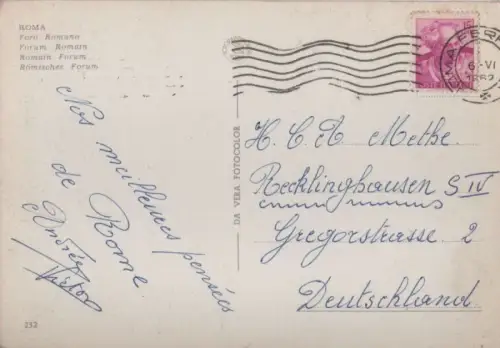 ROMA
Foro Romano
Forum Romain
Roman Forum
Römisches Forum
Nos meilleures pensées
de Rome
Andrée
Victor
252
DA VERA FOTOCOLOR
ROMA FERR
6-VI
H. C. A Methe.
Recklinghausen S IV
Gregorstrasse 2
Deutschland